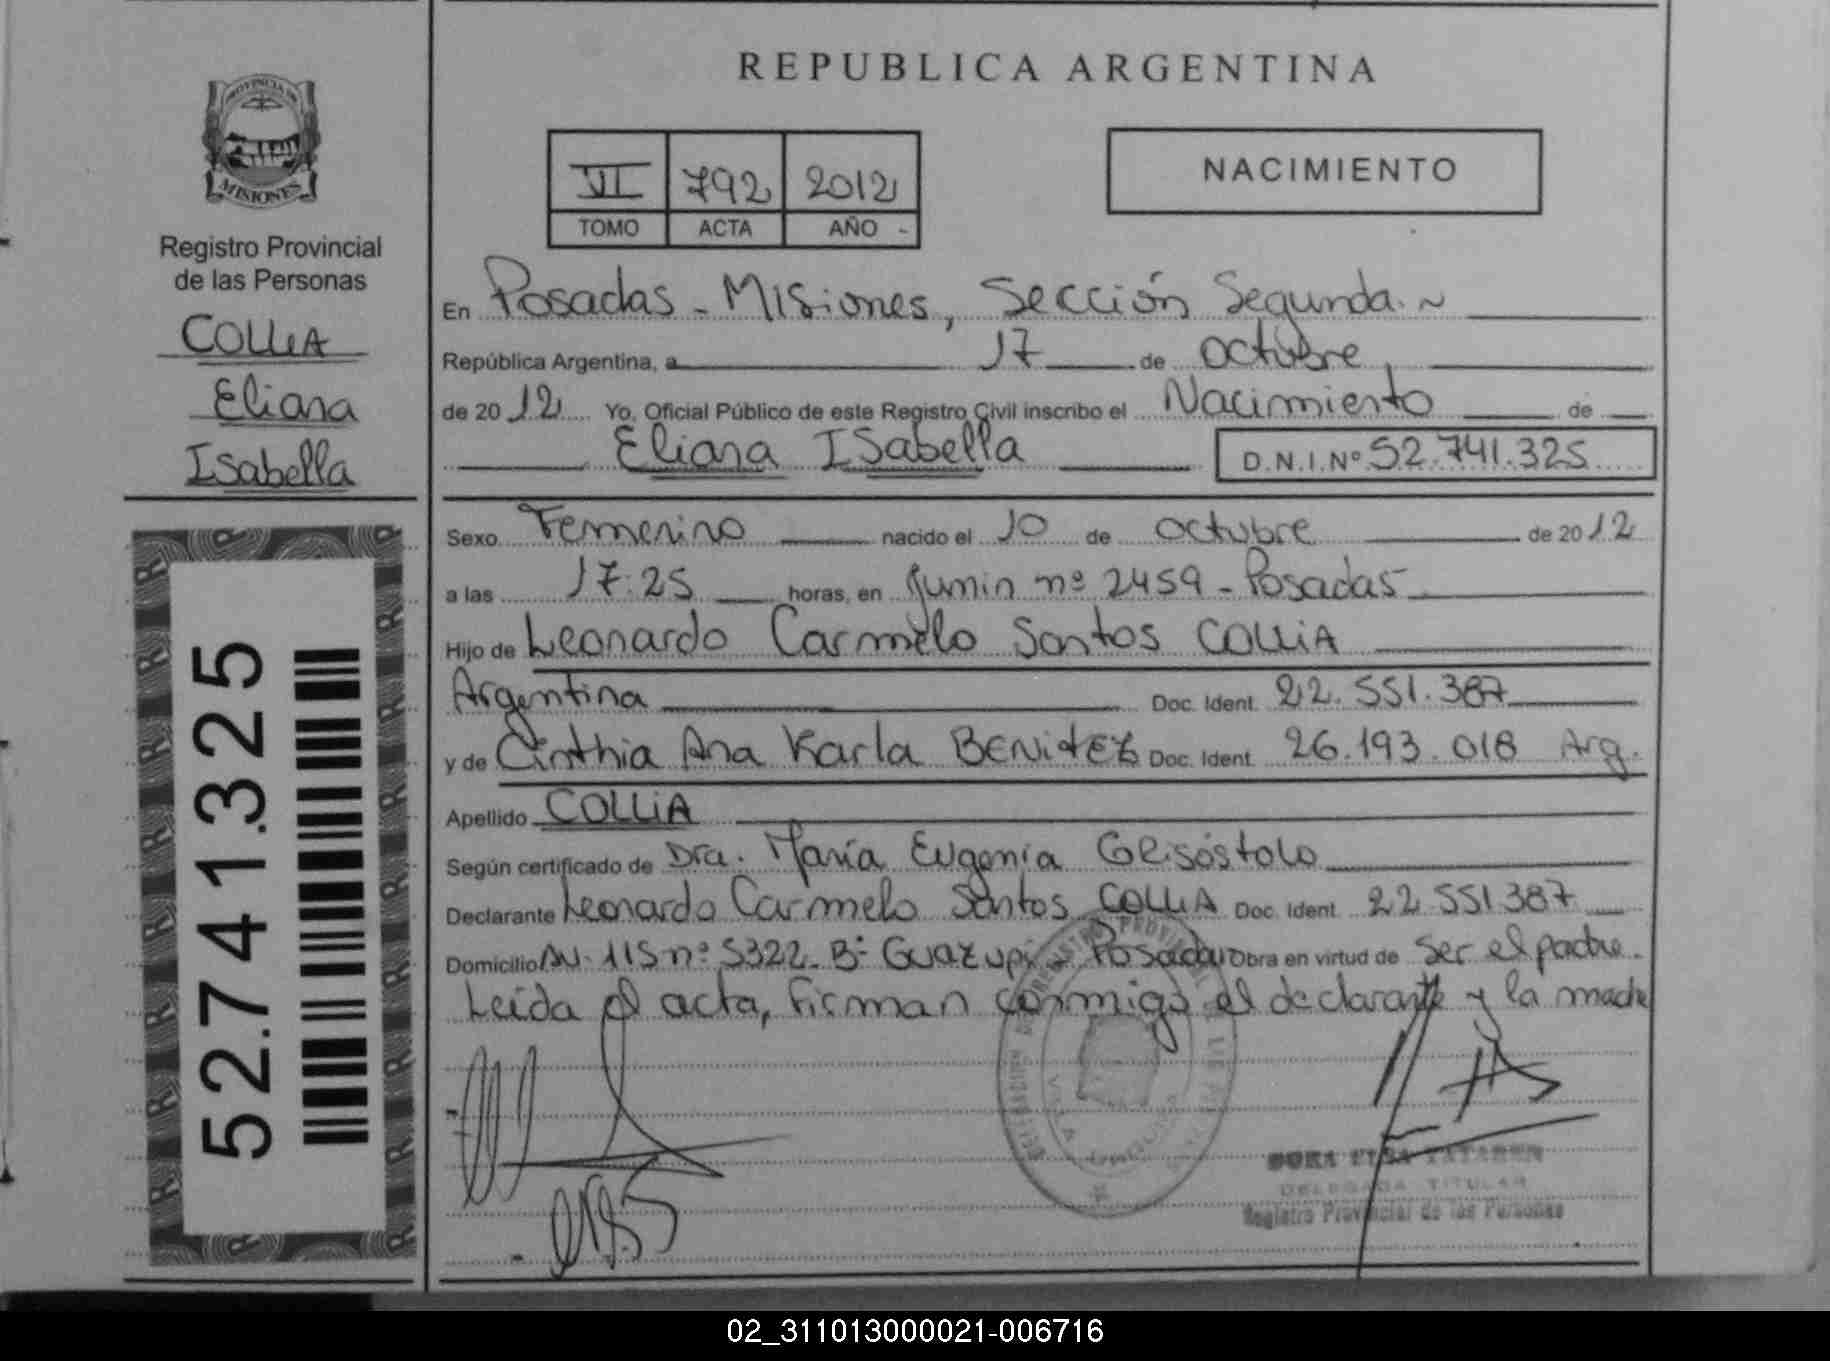 REPUBLICA ARGENTINA
PROVINCIA DE
MISIONES
Registro Provincial
de las Personas
COLLIA
Eliana
Isabella
52.741.325
VI 792 2012
TOMO ACTA AÑO
NACIMIENTO
En Posadas - Misiones, Sección Segunda.~
República Argentina, a 17 de octubre
de 2012 Yo, Oficial Público de este Registro Civil inscribo el Nacimiento de
Eliana Isabella D.N.I.Nº 52.741.325
Sexo Femenino nacido el 10 de octubre de 2012
a las 17:25 horas, en Junin nº 2459 - Posadas
Hijo de Leonardo Carmelo Santos COLLIA
Argentina Doc. Ident. 22.551.387
y de Cinthia Ana Karla BENITEZ Doc. Ident. 26.193.018 Arg.
Apellido COLLIA
Según certificado de Dra. María Eugenia
Declarante Leonardo Carmelo Santos COLLIA Doc. Ident. 22.551.387
Domicilio AV. 115 nº 5322 - Bº Guazupi - Posadas Obra en virtud de ser el padre.
Leída el acta, firman conmigo el declarante y la madre
DELEGADA TITULAR
Registro Provincial de las Personas
02_311013000021-006716